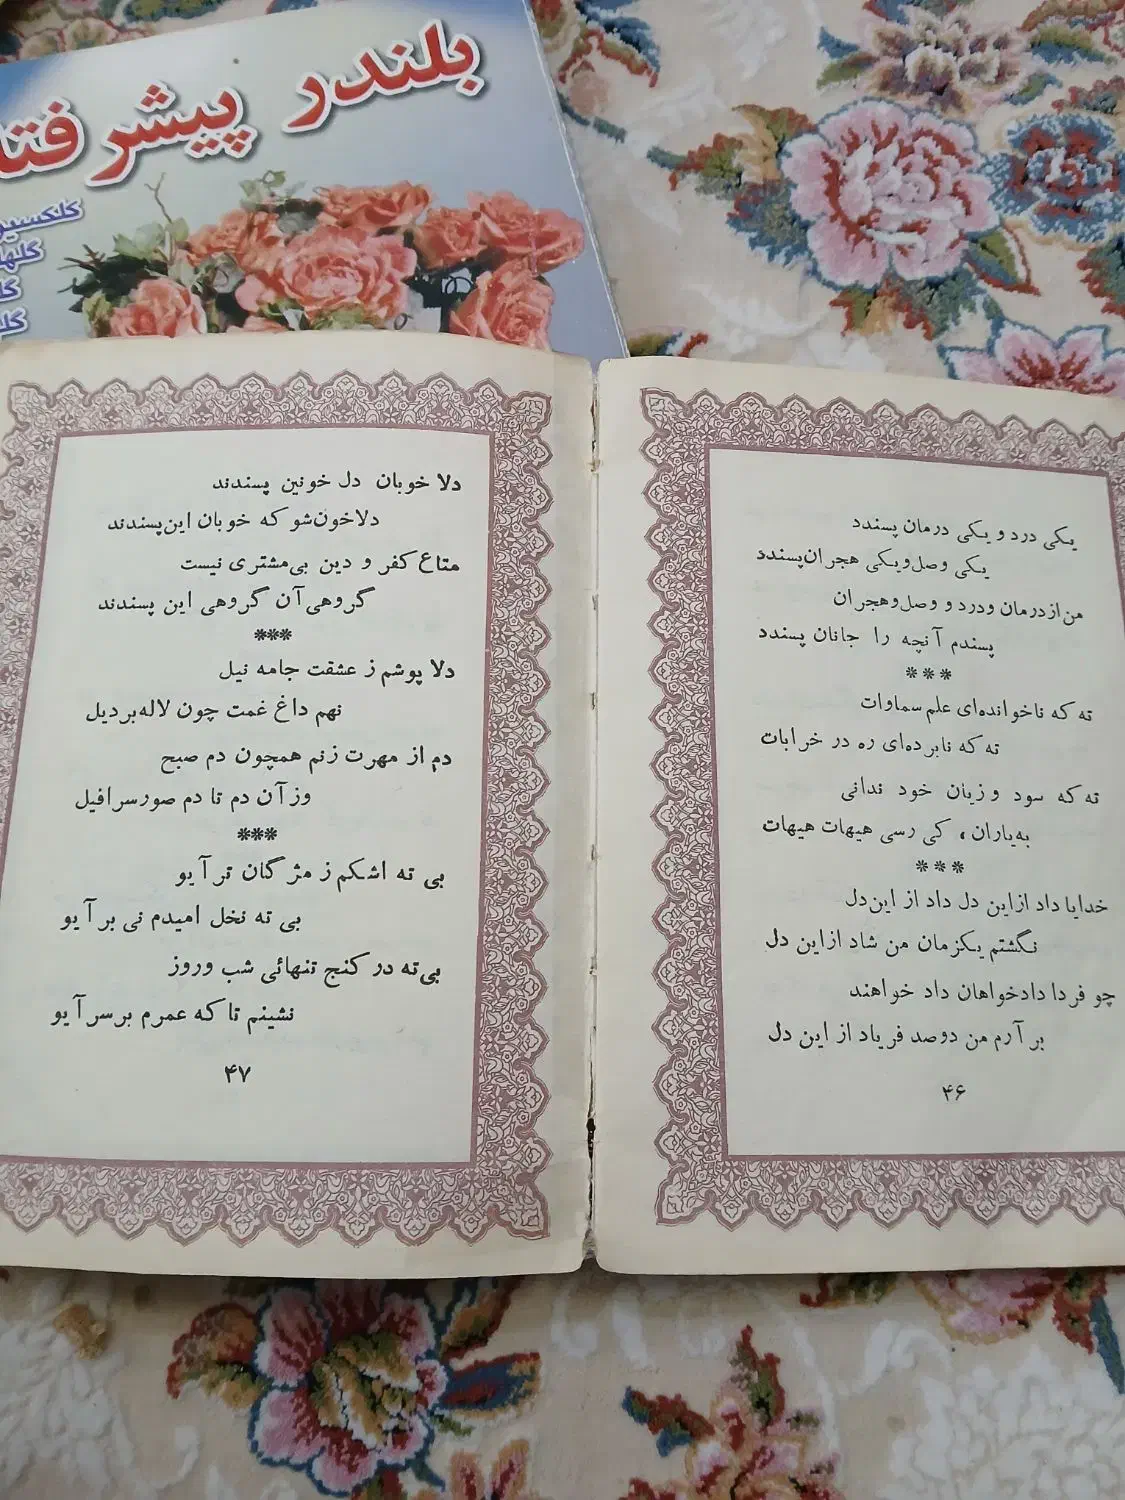 بلندر پیشرفتا
کلکسیو
گلها
یکی درد و یکی درمان پسندد
یکی وصل و یکی هجران پسندد
من از درمان و درد و وصل و هجران
پسندم آنچه را جانان پسندد
***
ته که ناخوانده‌ای علم سماوات
ته که نابرده‌ای ره در خرابات
ته که سود و زیان خود ندانی
به‌یاران، کی رسی هیهات هیهات
***
خدایا داد از این دل داد از این دل
نگشتم یکزمان من شاد از این دل
چو فردا دادخواهان داد خواهند
بر آرم من دو صد فریاد از این دل
۴۶
دلا خوبان دل خونین پسندند
دلا خون شو که خوبان این پسندند
متاع کفر و دین بی‌مشتری نیست
گروهی آن گروهی این پسندند
***
دلا پوشم ز عشقت جامه نیل
نهم داغ غمت چون لاله بر دیل
دم از مهرت زنم همچون دم صبح
وز آن دم تا دم صور سرافیل
***
بی ته اشکم ز مژگان تر آیو
بی ته نخل امیدم نی بر آیو
بی ته در کنج تنهائی شب و روز
نشینم تا که عمرم بر سر آیو
۴۷